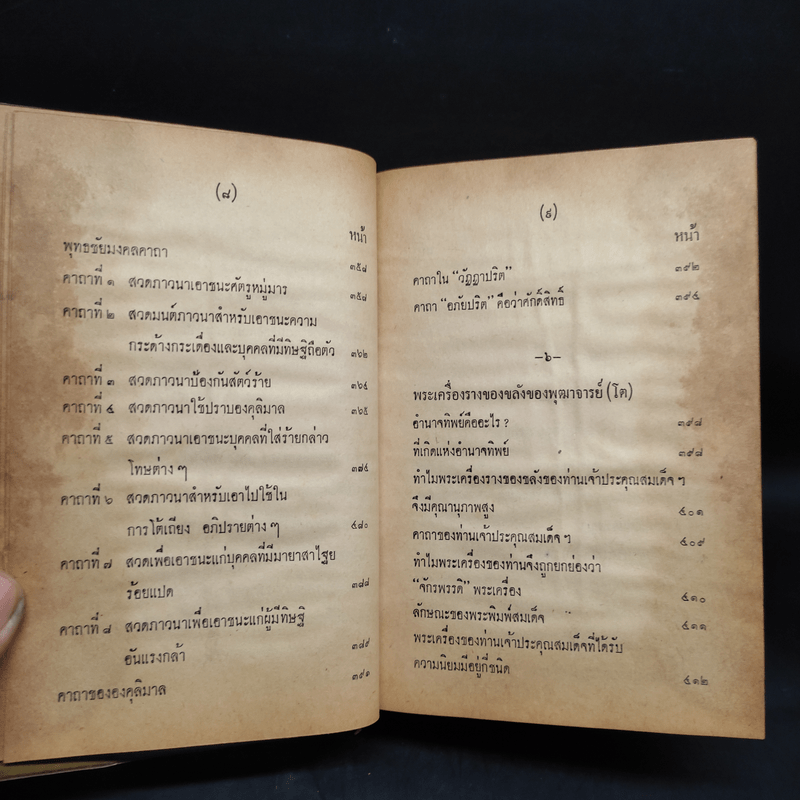 (๘)
หน้า
พุทธชัยมงคลคาถา ๓๕๘
คาถาที่ ๑ สวดภาวนาเอาชนะศัตรูหมู่มาร ๓๕๘
คาถาที่ ๒ สวดมนต์ภาวนาสำหรับเอาชนะความ
กระด้างกระเดื่องและบุคคลที่มีทิษฐิถือตัว ๓๖๒
คาถาที่ ๓ สวดภาวนาป้องกันสัตว์ร้าย ๓๖๔
คาถาที่ ๔ สวดภาวนาใช้ปราบองคุลิมาล ๓๖๕
คาถาที่ ๕ สวดภาวนาเอาชนะบุคคลที่ใส่ร้ายกล่าว
โทษต่าง ๆ ๓๗๔
คาถาที่ ๖ สวดภาวนาสำหรับเอาไปใช้ใน
การโต้เถียง อภิปรายต่าง ๆ ๔๘๐
คาถาที่ ๗ สวดเพื่อเอาชนะแก่บุคคลที่มีมายาสาไถย
ร้อยแปด ๓๘๘
คาถาที่ ๘ สวดภาวนาเพื่อเอาชนะแก่ผู้มีทิษฐิ
อันแรงกล้า ๓๘๙
คาถาขององคุลิมาล ๓๙๑
(๙)
หน้า
คาถาใน “วัฏฏาปริต” ๓๙๒
คาถา “อภัยปริต” คือว่าศักดิ์สิทธิ์ ๓๙๔
–๖–
พระเครื่องรางของขลังของพุฒาจารย์ (โต)
อำนาจทิพย์คืออะไร ? ๓๙๘
ที่เกิดแห่งอำนาจทิพย์ ๓๙๘
ทำไมพระเครื่องรางของขลังของท่านเจ้าประคุณสมเด็จ ฯ
จึงมีคุณานุภาพสูง ๔๐๑
คาถาของท่านเจ้าประคุณสมเด็จ ฯ ๔๐๙
ทำไมพระเครื่องของท่านจึงถูกยกย่องว่า
“จักรพรรดิ” พระเครื่อง ๔๑๐
ลักษณะของพระพิมพ์สมเด็จ ๔๑๑
พระเครื่องของท่านเจ้าประคุณสมเด็จที่ได้รับ
ความนิยมมีอยู่กี่ชนิด ๔๑๒